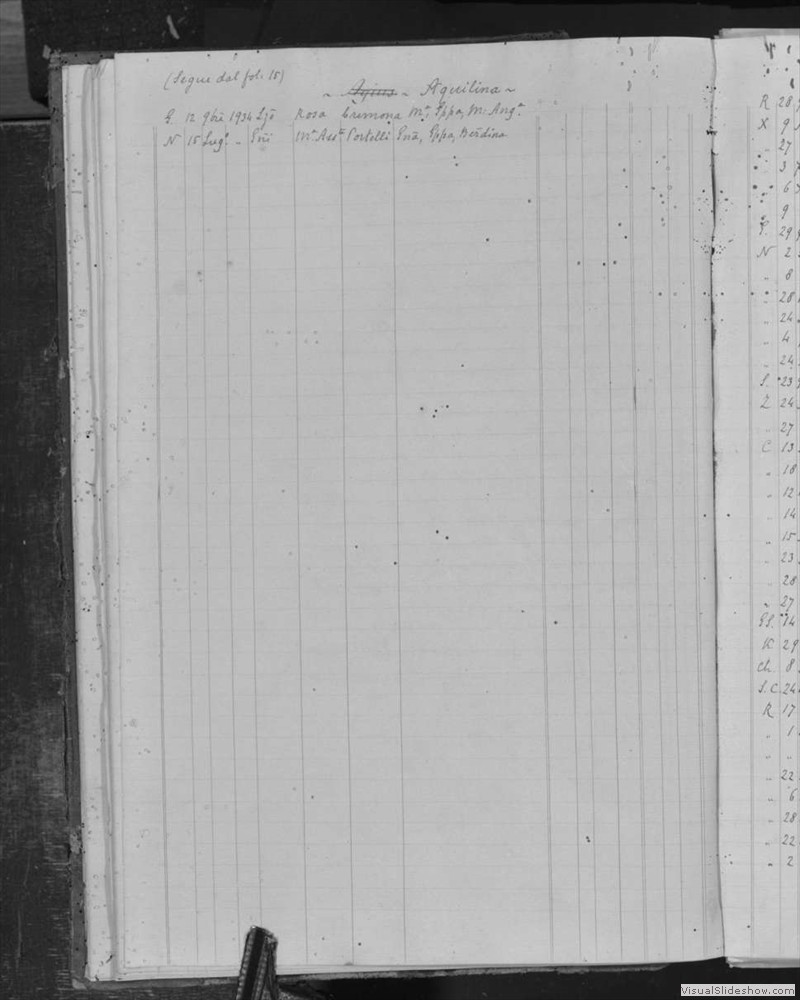 (Segue dal fol. 15)
~ Agius ~ Aquilina ~
G. 12 9bre 1934 Ljo Rosa Cremona Ma, Gppa, M. Anga
N 15 Lugo - Gni Ma Assa Portelli Gna, Gppa, Berdina
R 28
X 9
" 27
" 3
" 6
" 9
P. 29
N 2
" 8
" 28
" 24
" 4
" 24
S. 23
Z 24
" 27
C 13
" 18
" 12
" 14
" 15
" 23
" 28
" 27
14
K 29
Ch 8
S.C. 24
R 17
" 1
" "
" 22
" 6
" 28
" 22
" 2
VisualSlideshow.com